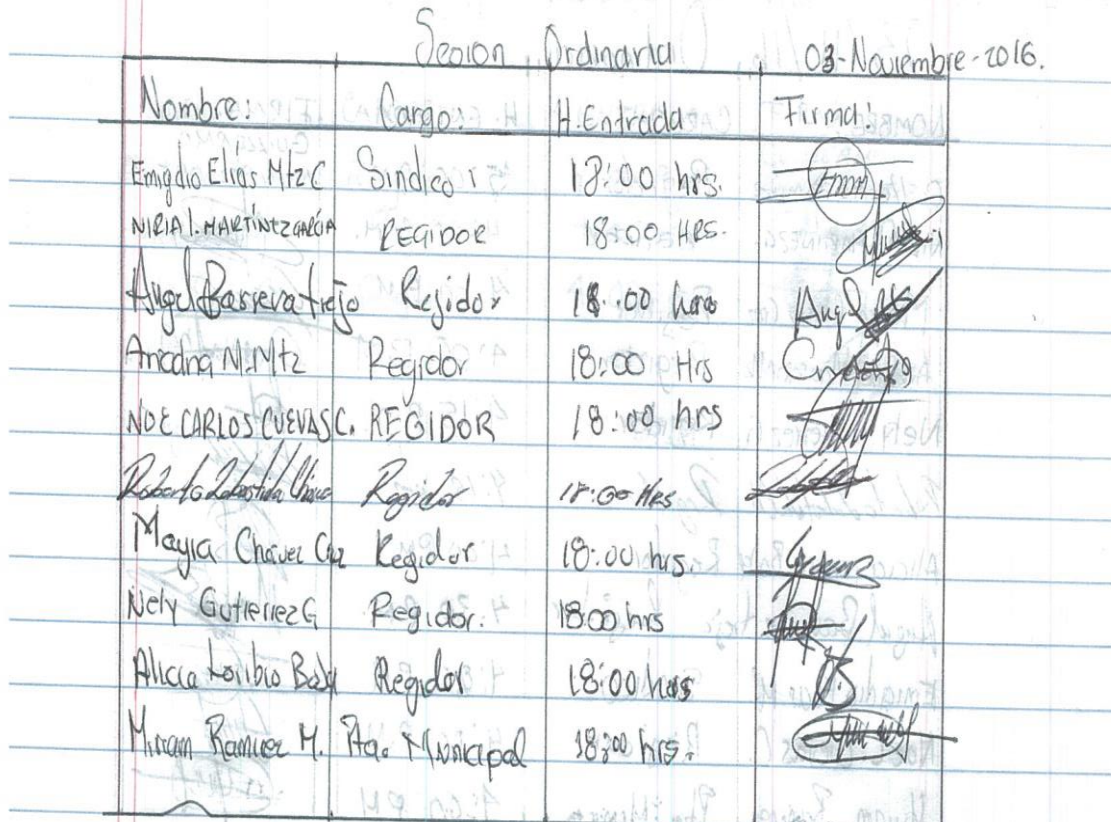 Sesion Ordinaria 03-Noviembre-2016.
Nombre: Cargo: H.Entrada Firma:
Emigdio Elias Mtz C Sindico 18:00 hrs.
NIRIA I. MARTINEZ GARCÍA REGIDOR 18:00 HRS.
Angel Barrera trejo Regidor 18:00 hrs Angel
Ariadna N. Mtz Regidor 18:00 Hrs
NOE CARLOS CUEVAS C. REGIDOR 18:00 hrs
Roberto Regidor 18:00 Hrs
Mayra Chávez Cruz Regidor 18:00 hrs.
Nely Gutierrez G Regidor. 18:00 hrs
Alicia toribio Regidor 18:00 hrs
Miriam Ramirez M. Pta. Municipal 18:00 hrs.